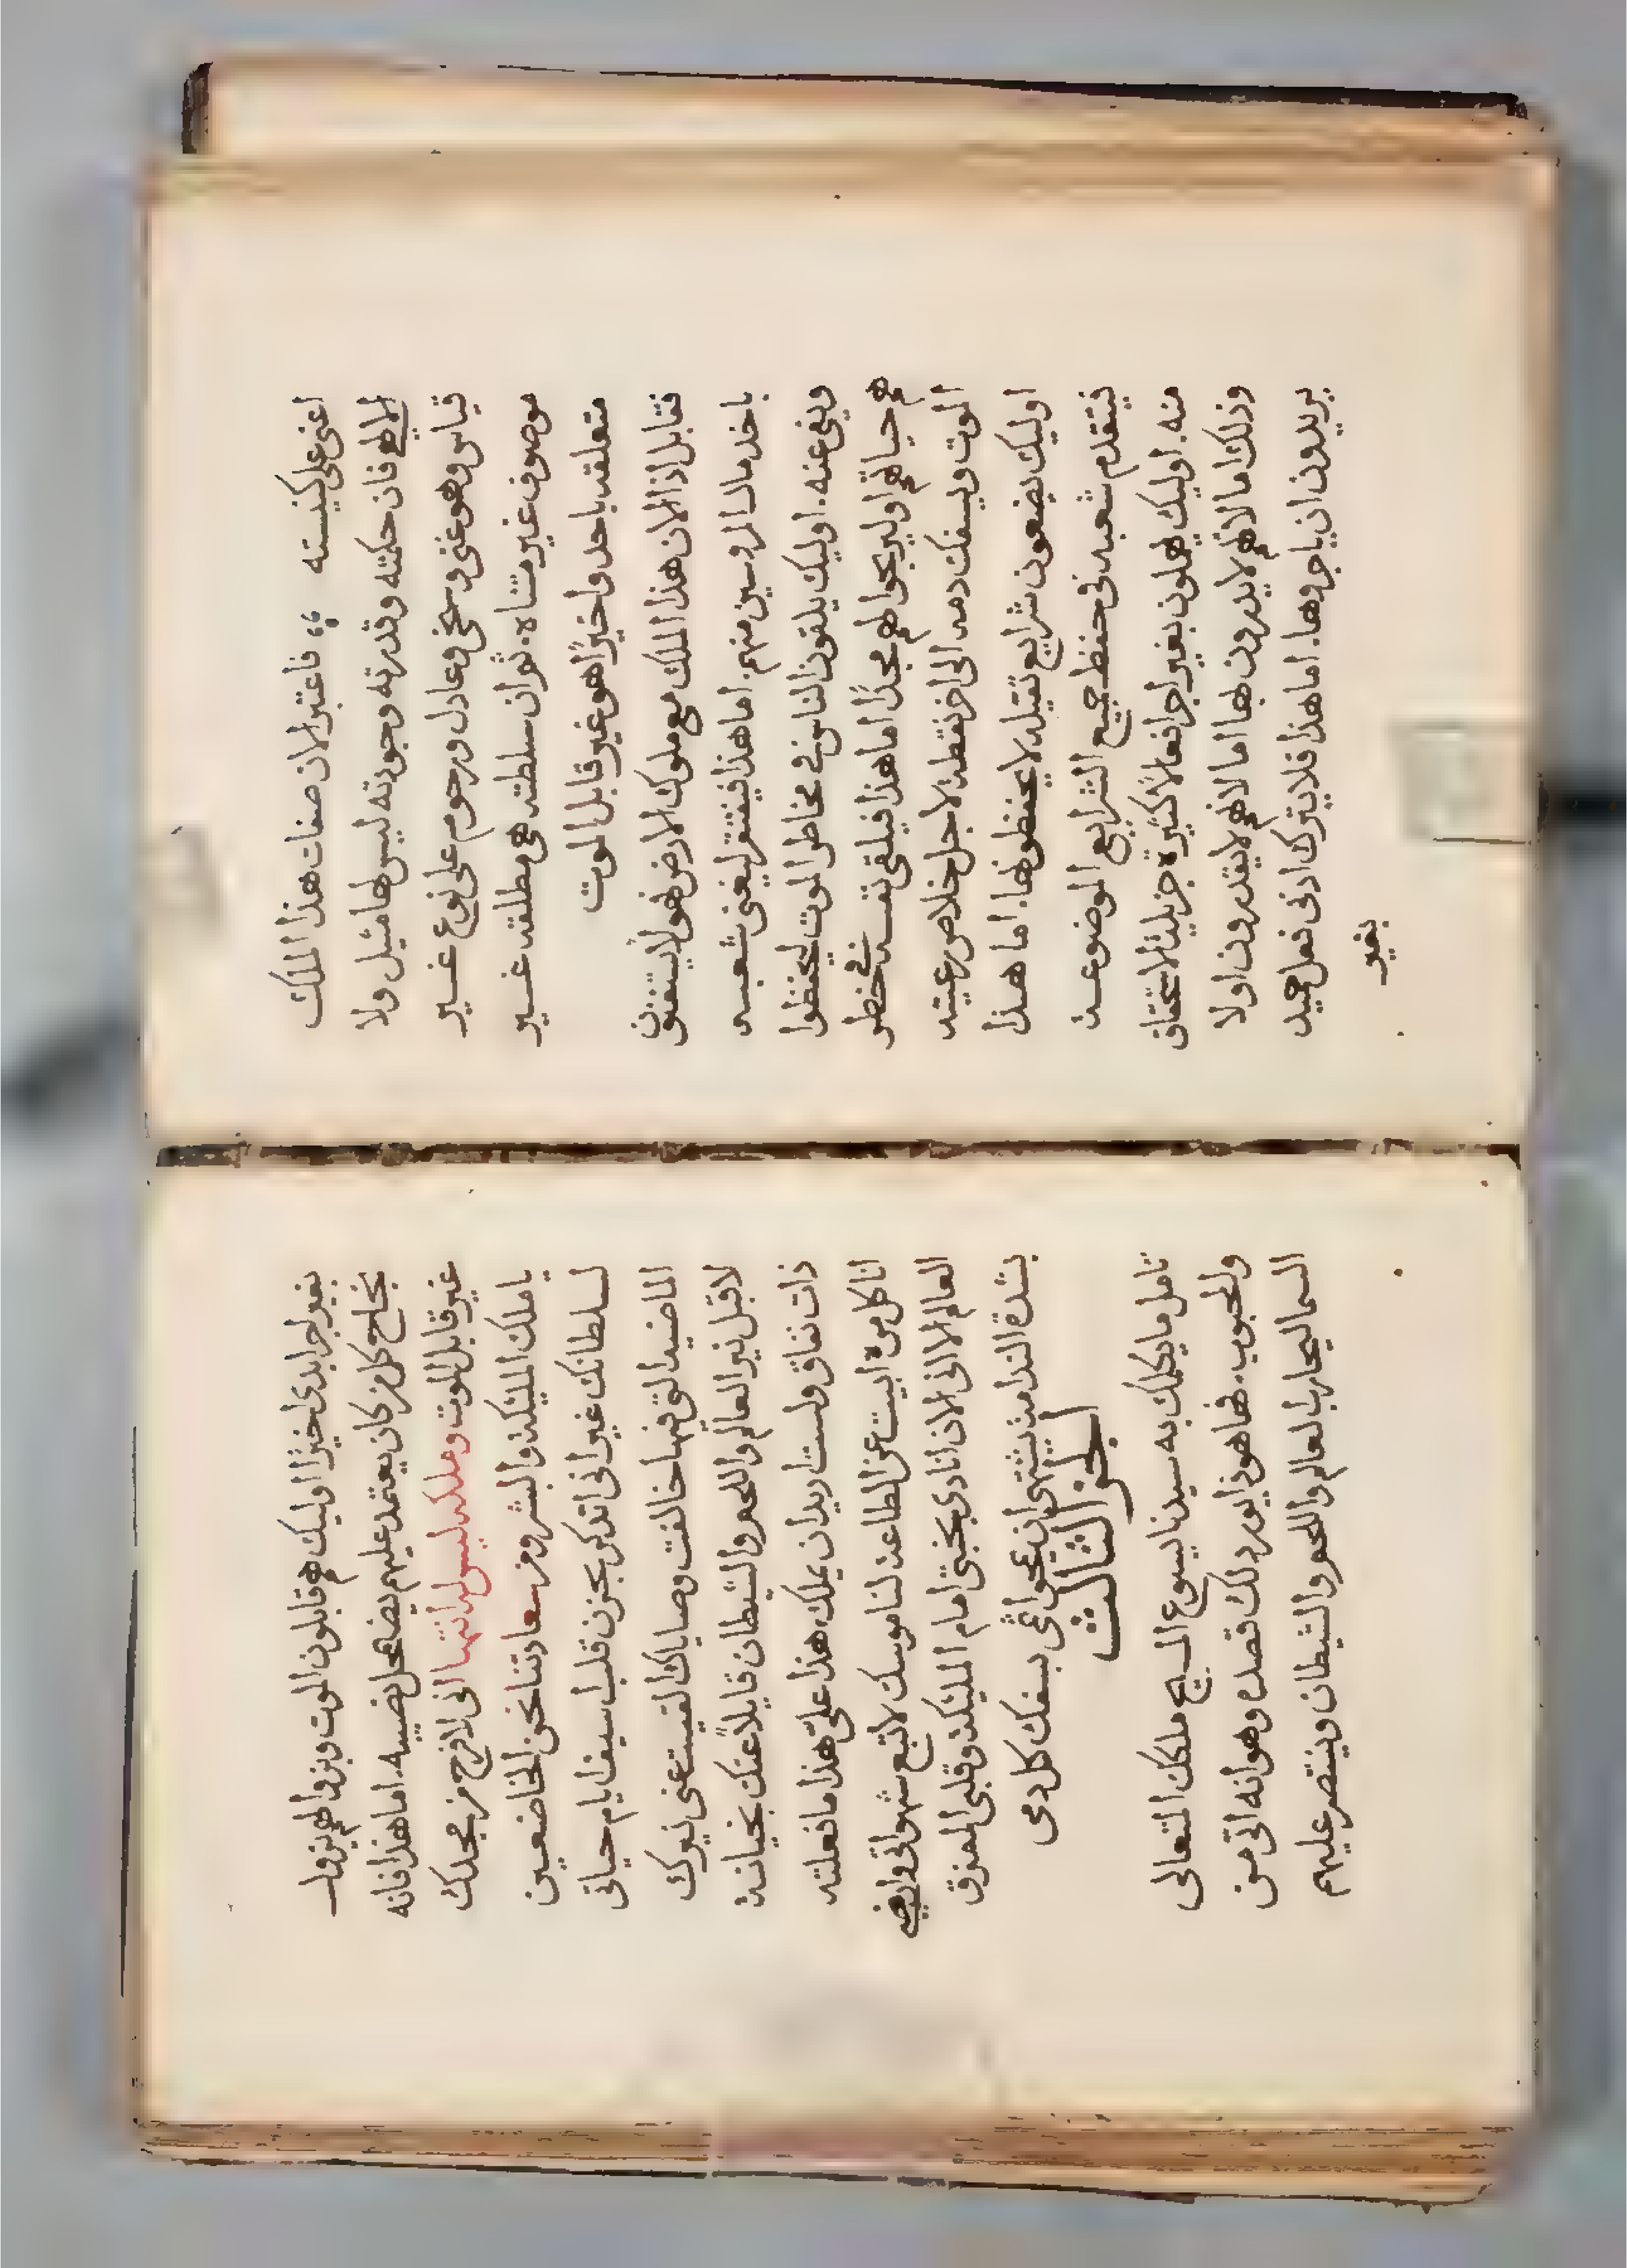 اعنى على كنيسته فاعتبر الان صفات هذا الملك
الالهي فان حكمته وقدرته وجودته ليس لها مثيل ولا
قياس وهو غنى وسخى وعادل ورحوم على نوع غسير
موصوف غير متناه. ثم ان سلطته هى مطلقه غسير
متعلقه باحد واخيرًا هو غير قابل الموت
فقابل اذا الان هذا الملك مع ملوك الارض فهولا يستغنون
باخد مال المروسين منهم. اما هذا فيفتقر ليغنى شعبه
ويغنى عنه. اوليك يلقون الناس في مخاطر الموت ليحفظوا
هم حياتهم اوليربحوا لهم مجدًا اما هذا فيلقى نفسه في خطر
الموت ويسفك دمه الى اخر نقطة لاجل خلاص رعيته
اوليك يضعون شرايع ثقيله لا يحفظونها. اما هذا
فيتقدم شعبه فى حفظ جميع الشرايع الموضوعة
منه. اوليك يهملون بغير اجر افعالاً كثيرة جزيلة الاستحقاق
وذلك اما لانهم لا يدرون بها اما لانهم لا يقدرون اولا
يريدون ان ياجروها. اما هذا فلا يترك ادنى فعل حميد
بغير
بغير اجر ابدى اخيرًا اوليك هم قابلون الموت وبزوالهم يزول
نجاح كل من كان يعتمد عليهم يضمحل نصيبه. اما هذا فانه
غير قابل الموت وملكه ليس له انتها انى لافرح من مجدك
يا ملك المليكة والبشر ومن سعادتنا نحن الخاضعين
لسلطانك غير انى اتدكر بحزن قلب اسيفا ايام حياتى
الماضية التى فيها خالفت وصاياك القيت عنى نيرك
لاقبل نير العالم واللحم والشيطان قايلاً عنك بخيانة
ذات نفاق ولست اريد ان يملك هذا علىّ هذا ما فعلته
انا كل مرة ابيت عن الطاعة لناموسك لاتبع شهواتى وارضي
العالم الا انى الان انادى بخبثى امام المليكة وقلبى الممزق
بشدة الندامة يشتهى ان يمحو اثمى بسفك كل دمى
الجز الثالث
تامل ما يكلمك به سيدنا يسوع المسيح ملكك المتعالى
والمحبوب. فها هوذا يورد لك قصده وهو انه اتى من
السما ليحارب العالم واللحم والشيطان وينتصر عليهم